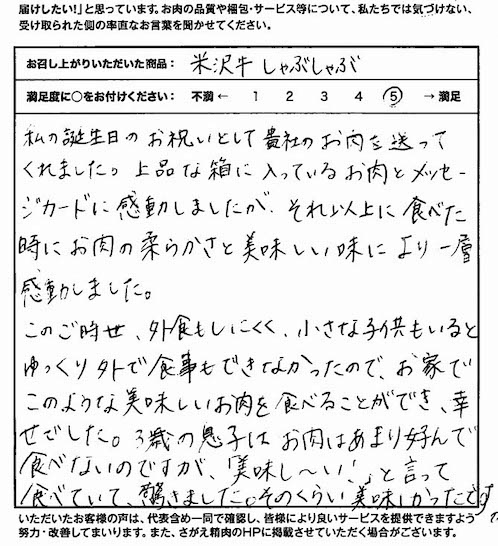 届けしたい!」と思っています。お肉の品質や梱包・サービス等について、私たちでは気づけない、
受け取られた側の率直なお言葉を聞かせてください。
お召し上がりいただいた商品： 米沢牛しゃぶしゃぶ
満足度に○をお付けください： 不満 ← 1 2 3 4 ⑤ → 満足
私の誕生日のお祝いとして貴社のお肉を送って
くれました。上品な箱に入っているお肉とメッセー
ジカードに感動しましたが、それ以上に食べた
時にお肉の柔らかさと美味しい味により一層
感動しました。
このご時世、外食もしにくく、小さな子供もいると
ゆっくり外で食事もできなかったので、お家で
このような美味しいお肉を食べることができ、幸
せでした。3歳の息子はお肉はあまり好んで
食べないのですが、「美味し〜い!」と言って
食べていて、驚きました。そのくらい美味しかったです
いただいたお客様の声は、代表含め一同で確認し、皆様により良いサービスを提供できますよう
努力・改善してまいります。また、さがえ精肉のHPに掲載させていただく場合がございます。